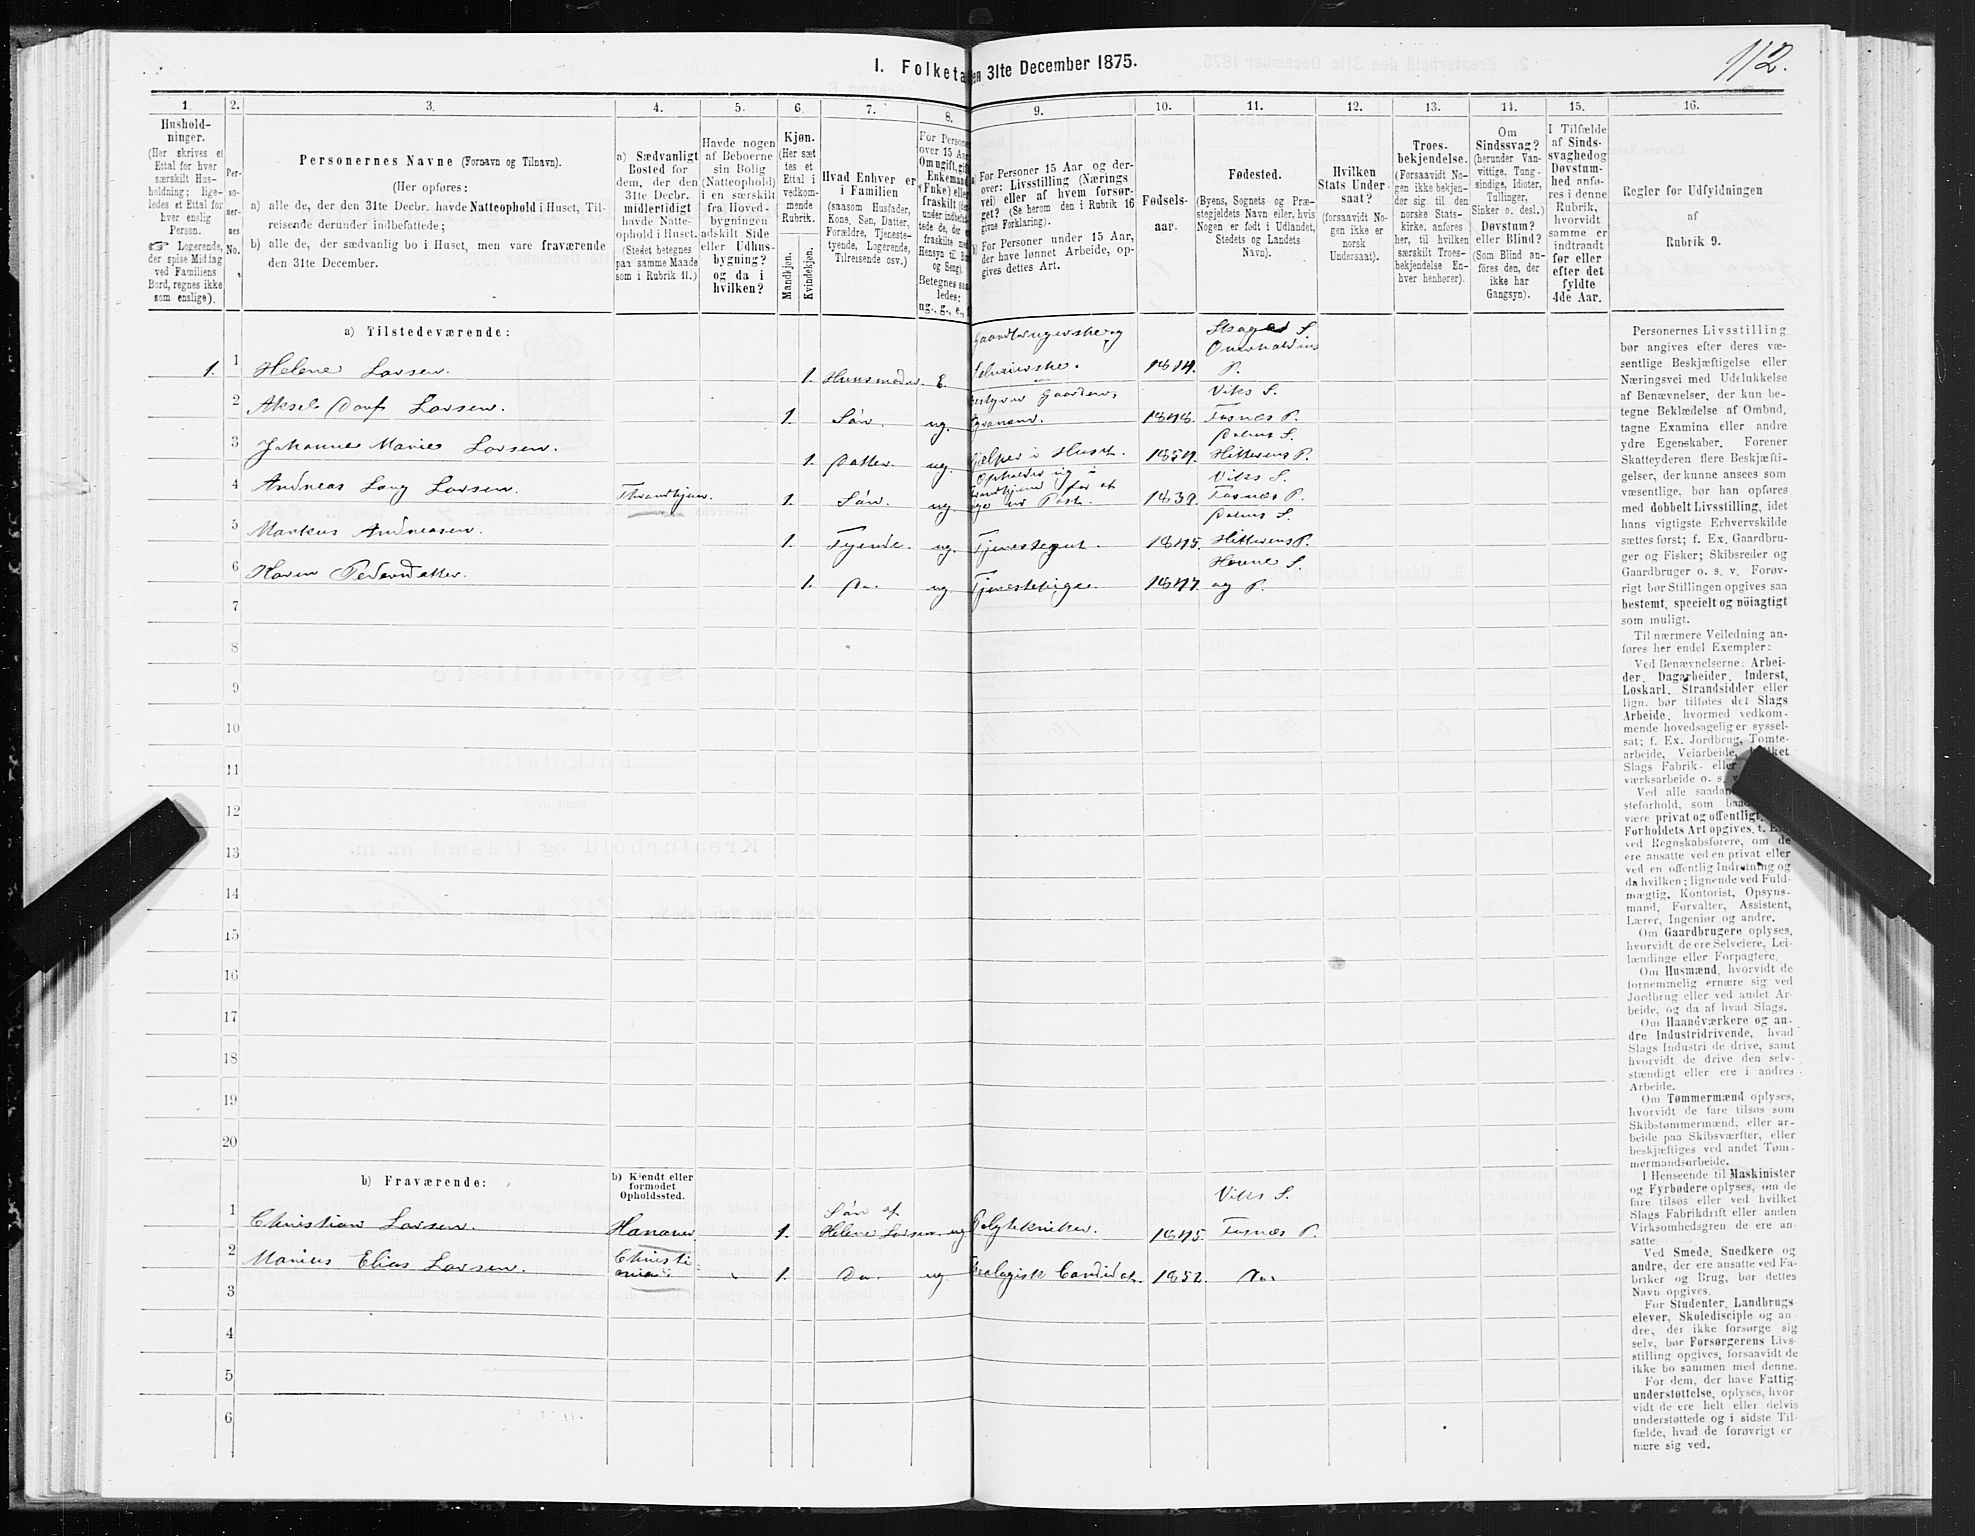 112.
I. Folketa
en 31te December 1875.
1.
2.
3.
4.
5.
6.
7.
8.
9.
10.
11.
12.
13.
14.
15.
16.
Hushold-
ninger.
(Her skrives et
Ettal for hver
særskilt Hus-
holdning; lige-
ledes et Ettal for
hver enslig
Person.
☞ Logerende,
der spise Middag
ved Familiens
Bord, regnes ikke
som enslige).
Per-
so-
ner-
nes
No.
Personernes Navne (Fornavn og Tilnavn).
(Her opføres:
a) alle de, der den 31te Decbr. havde Natteophold i Huset, Til-
reisende derunder indbefattede;
b) alle de, der sædvanlig bo i Huset, men vare fraværende
den 31te December.
a) Sædvanligt
Bosted for
dem, der den
31te Decbr.
midlertidigt
havde Natte-
ophold i Huset.
(Stedet betegnes
paa samme Maade
som i Rubrik 11.)
Havde nogen
af Beboerne
sin Bolig
(Natteophold)
i en særskilt
fra Hoved-
bygningen
adskilt Side
eller Udhus-
bygning?
og da i
hvilken?
Kjøn.
(Her sæt
tes et
Ettal i
vedkom-
mende
Rubrik.
Mandkjøn.
Kvindekjøn.
Hvad Enhver er
i Familien
(saasom Husfader,
Kone, Søn, Datter,
Forældre, Tjeneste-
tyende, Logerende,
Tilreisende osv.)
For Person
over 15 Aar
Om ugift, gif
Enkemand
(Enke) elle
fraskilt (de
under indbefat
tede de, der e
fraskilte me
Hensyn til B
og Seng).
Betegnes saa
ledes:
ug., g., e.,
For Personer 15 Aar og der-
over: Livsstilling (Nærings
vei) eller af hvem forsør-
get? (Se herom den i Rubrik 16
givne Forklaring).
b) For Personer under 15 Aar,
der have lønnet Arbeide, op-
gives dettes Art.
Fødsels-
aar.
Fødested.
(Byens, Sognets og Præ-
stegjeldets Navn eller, hvis
Nogen er født i Udlandet,
Stedets og Landets
Navn).
Hvilken
Stats Under-
saat?
(forsaavidt No-
gen ikke er
norsk
Undersaat).
Troes-
bekjendelse.
(Forsaavidt No-
gen ikke bekjen-
der sig til den
norske Stats-
kirke, anføres
her, til hvilken
særskilt Troes-
bekjendelse En-
hver henhører).
Om
Sindssvag?
(herunder Van-
vittige, Tung-
sindige, Idioter,
Tullinger,
Sinker o. desl.)
Døvstum?
eller Blind?
(Som Blind an-
føres den, der
ikke har
Gangsyn).
I Tilfælde
af Sinds-
svaghedog
Døvstum-
hed anfø-
res i denne
Rubrik,
hvorvidt
samme er
indtraadt
før eller
efter det
fyldte
4de Aar.
Regler for Udfyldningen
af
Rubrik 9.
a) Tilstedeværende:
Gaardbrugerske og
Overhaldens
1. 1 Helene Larsen. 1. Huusmoder. E. Selveierske. 1814. P.
Viks S.
2 Aksel Dorf Larsen. 1. Søn. ug. 1848. Fosnæs P.
3 Johanne Marie Larsen. 1. Datter. ug. Hjelper i Huset. 1854. Hitterens P.
Viks S.
4 Andreas Lang Larsen. Throndhjem. 1. Søn. ug. 1839. Fosnæs P.
5 Markus Andreasen. 1. Tyende. ug. Tjenestegut. 1845. Hitterens P.
6 Karen Pedersdatter. 1. Do. ug. Tjenestepige. 1847. og P.
7
8
9
10
11
12
13
14
15
16
17
18
19
20
b) Fraværende:
b) Kjendt eller
formodet
Opholdssted.
Søn af
Viks S.
1 Christian Larsen. Hanover 1. Helene Larsen. ug Polytekniker. 1845. Fosnæs P.
2 Marius Elias Larsen. Christi-
ania 1. Do. ug Theologisk Candidat. 1852. Do.
3
4
5
6
Personernes Livsstilling
bør angives efter deres væ-
sentlige Beskjæftigelse eller
Næringsvei med Udelukkelse
af Benævnelser, der kun be-
tegne Beklædelse af Ombud,
tagne Examina eller andre
ydre Egenskaber. Forener
Skatteyderen flere Beskjæfti-
gelser, der kunne ansees som
væsentlige, bør han opføres
med dobbelt Livsstilling, idet
hans vigtigste Erhvervskilde
sættes først; f. Ex. Gaardbru-
ger og Fisker; Skibsreder og
Gaardbruger o. s. v. Forøv-
rigt bør Stillingen opgives saa
bestemt, specielt og nöiagtigt
som muligt.
Til nærmere Veiledning an-
føres her endel Exempler:
Ved Benævnelserne: Arbei-
der, Dagarbeider, Inderst,
Løskarl, Strandsidder eller
lign. bør tilføies det Slags
Arbeide, hvormed vedkom-
mende hovedsagelig er syssel-
sat; f. Ex. Jordbrug, Tomte-
arbeide, Veiarbeide,
Slags Fabrik- eller
værksarbeide o. s. v.
Ved alle saadan
steforhold, som baa
være privat og offentligt,
Forholdets Art opgives, t. Ex.
ved Regnskabsførere, om de
ere ansatte ved en privat eller
ved en offentlig Indretning og
da hvilken; lignende ved Fuld-
mægtig, Kontorist, Opsyns-
mand, Forvalter, Assistent,
Lærer, Ingeniør og andre.
Om Gaardbrugere oplyses,
hvorvidt de ere Selveiere, Lei-
lændinge eller Forpagtere.
Om Husmænd, hvorvidt de
fornemmelig ernære sig ved
Jordbrug eller ved andet Ar-
beide, og da af hvad Slags.
Om Haandværkere og an-
dre Industridrivende, hvad
Slags Industri de drive, samt
hvorvidt de drive den selv-
stændigt eller ere i andres
Arbeide.
Om Tømmermænd oplyses,
hvorvidt de fare tilsøs som
Skibstømmermænd, eller ar-
beide paa Skibsværfter, eller
beskjæftiges ved andet Tøm-
mermandsarbeide.
I Henseende til Maskinister
og Fyrbødere oplyses, om de
fare tilsøs eller ved hvilket
Slags Fabrikdrift eller anden
Virksomhedsgren de ere an-
satte.
Ved Smede, Snedkere og
andre, der ere ansatte ved Fa-
briker og Brug, bør dettes
Navn opgives.
For Studenter, Landbrugs-
elever, Skoledisciple og an-
dre, der ikke forsørge sig
selv, bør Forsørgerens Livs-
stilling opgives, forsaavidt de
ikke bo sammen med denne.
For dem, der have Fattig-
understøttelse, oplyses, hvor-
vidt de ere helt eller delvis
understøttede og i sidste Til-
fælde, hvad de forøvrigt er-
nære sig ved.